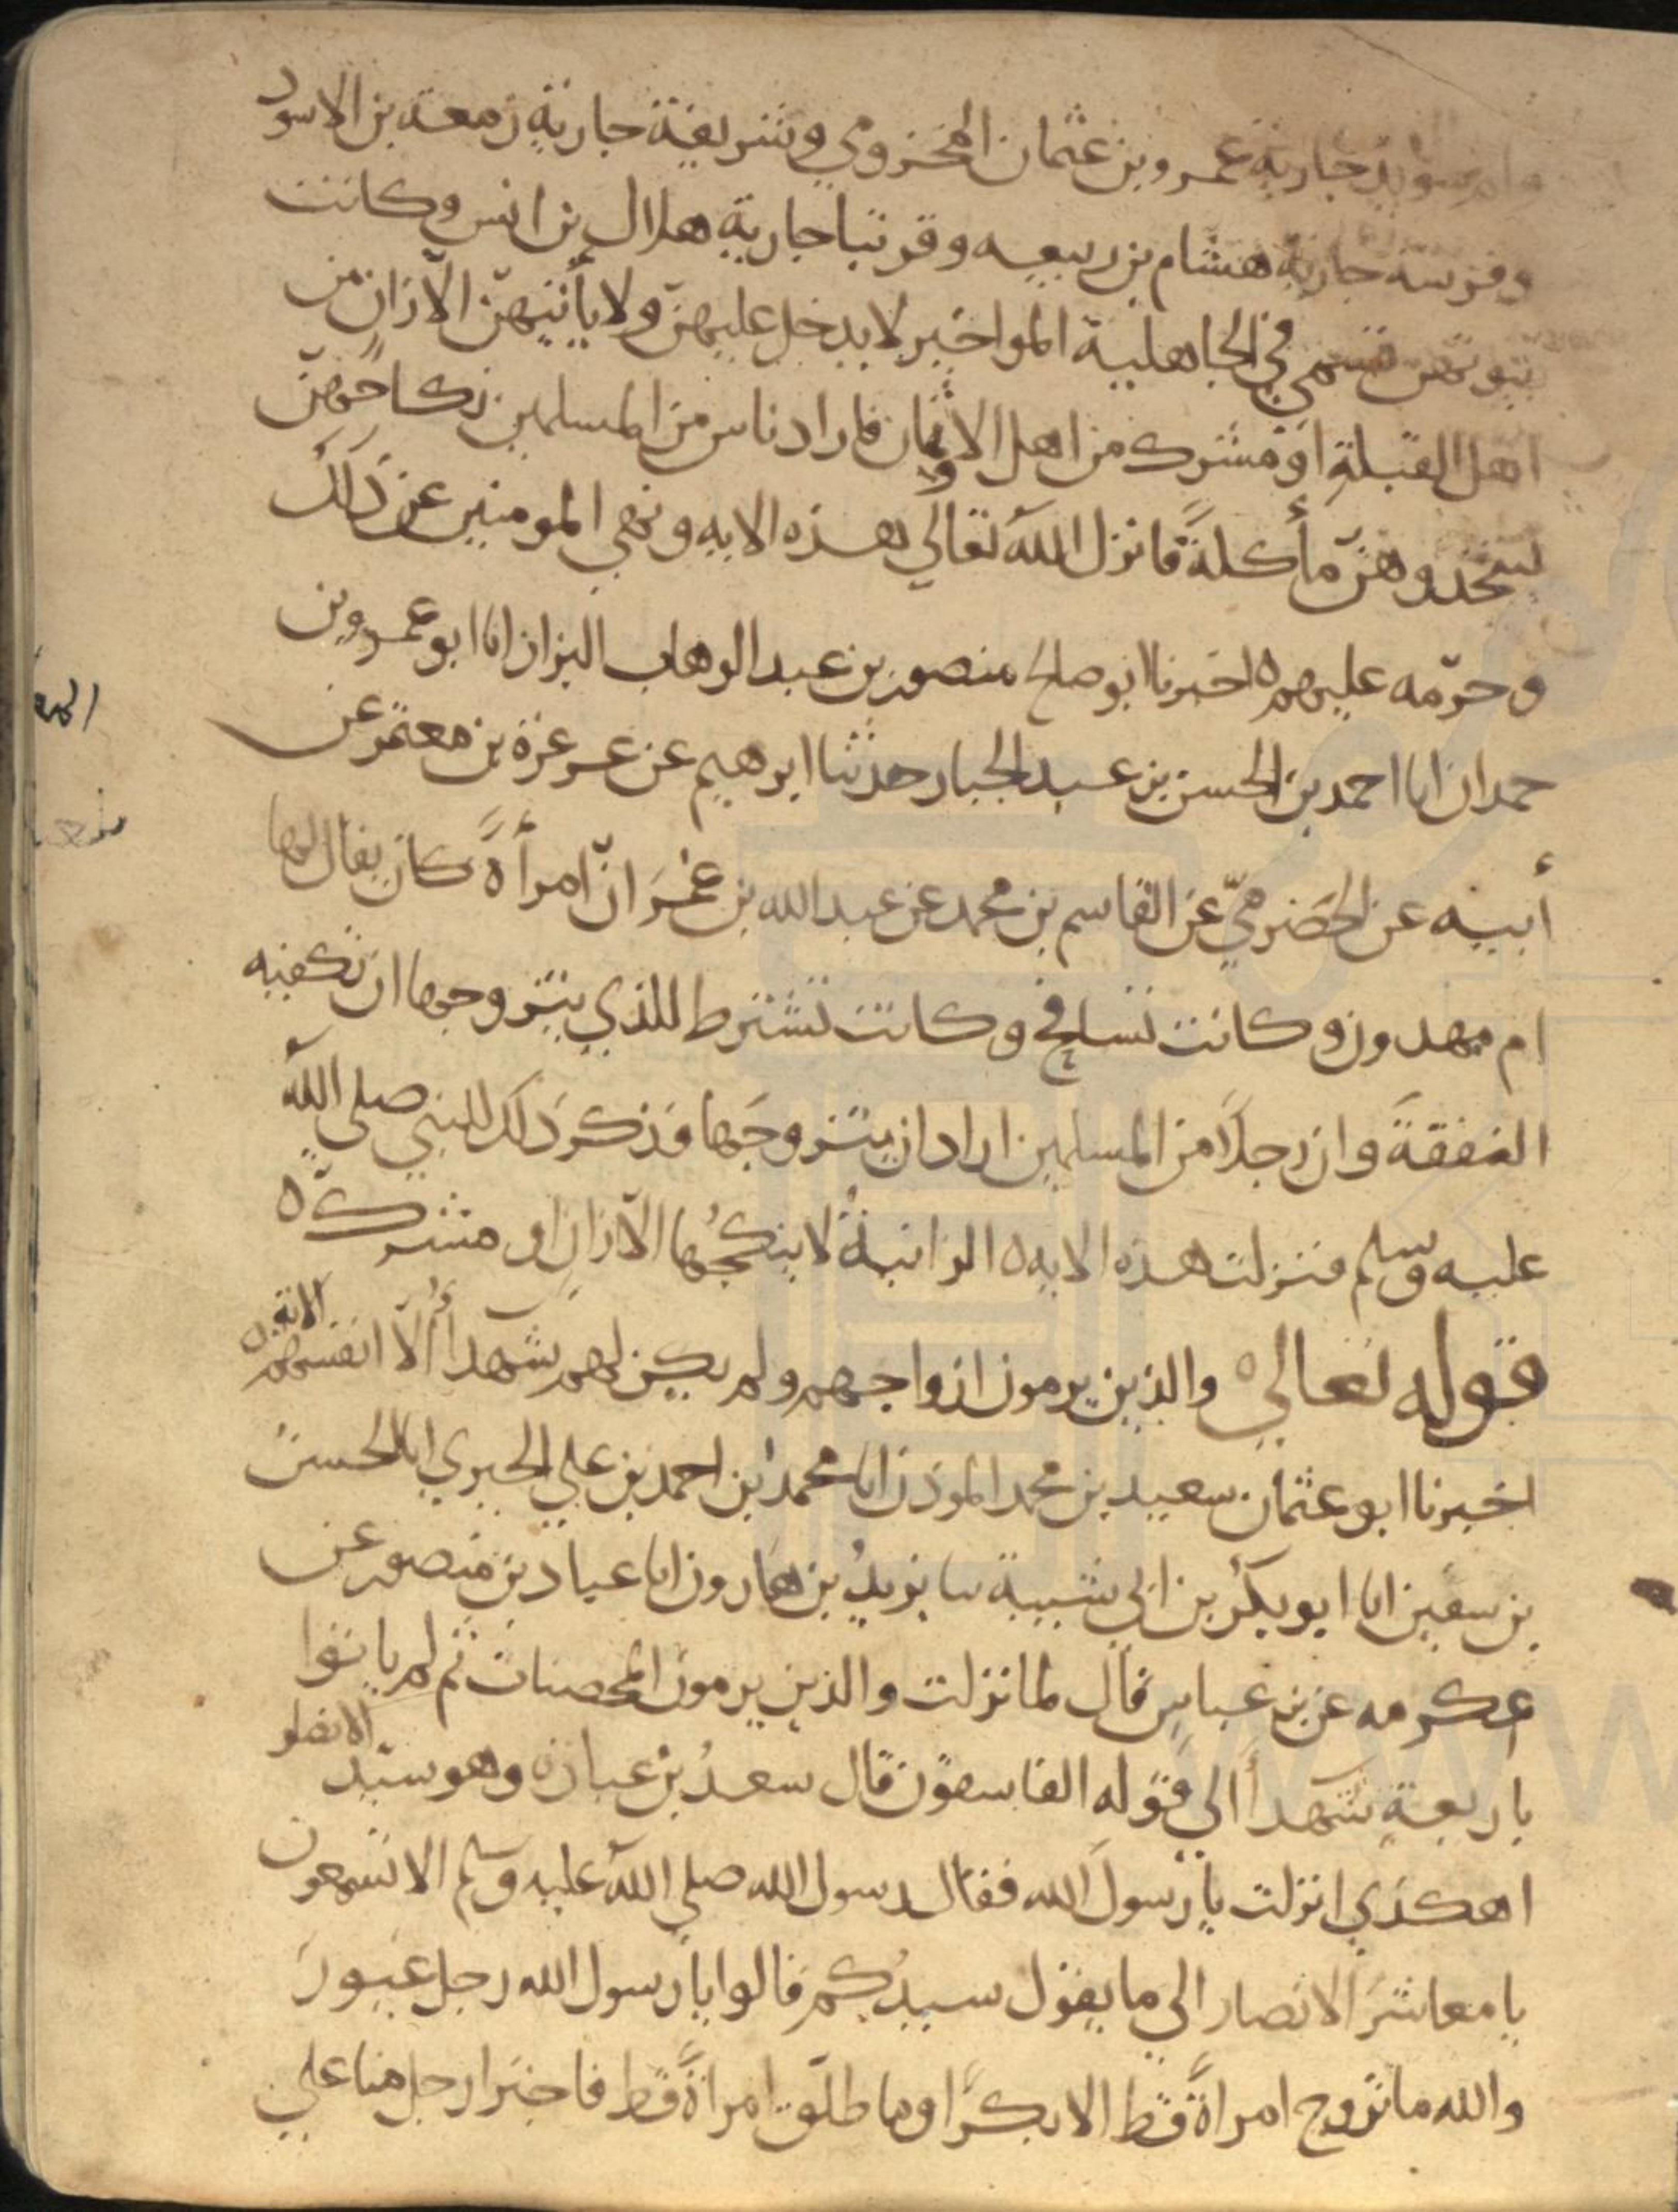 وام سويد جارية عمرو بن عثمان المخزومي وشريفة جارية زمعة بن الاسود
وفرسة جارية هشام بن ربيعه وقرتبا جارية هلال بن انس وكانت
بيوتهن تسمى في الجاهلية المواخير لا يدخل عليهن ولا يأتيهنّ الّا زانٍ من
اهل القبلةِ اوْ مشرك من اهل الاوثان فاراد ناس من المسلمين نكاحَهنّ
ليتخذوهنّ مأكلةً فانزل اللهُ تعالى هذه الايه ونهى المومنين عن ذَلكَ
وحرّمه عليهم ه اخبرنا ابو صالح منصور بن عبد الوهاب البزاز انا ابو عمرو بن
حمدان انا احمد بن الحسن بن عبد الجبار حدثنا ابرهيم عن عرعرة بن معتمر عن
أبيه عن الحَضرميّ عن القاسم بن محمد عن عبد الله بن عُمَرَ انّ امرأةً كان يقال لها
ام مهدون وكانت تسافح وكانت تشترط للذي يتزوجها ان تكفيه
النفقةَ وان رجلًا من المسلمين اراد ان يتزوجَها فذكر ذلك للنبي صلى الله
عليه وسلم فنزلت هذه الايه ه الزانيةُ لا ينكحُها الّا زانٍ او مشركٌ ه
قوله تعالى ه والذين يرمون ازواجهم ولم يكن لهم شهدأُ الّا انفسهم الاية ه
اخبرنا ابو عثمان سعيد بن محمد الموذن انا محمد ابن احمد بن علي الحيري انا الحسنُ
بن سفين انا ابو بكر بن ابي شيبة سا يزيدُ بن هارون انا عباد بن منصور عن
عكرمه عن بن عباس قال لما نزلت والذين يرمون المحصنات ثم لم ياتوا
باربعةِ شهدأَ الي قوله الفاسقون قال سعدُ بن عبادة وهو سيّد الانصار
اهكذي انزلت يا رسولَ الله فقال رسول الله صلى الله عليه وسلم الا تسمعون
يا معاشرَ الانصار الي ما يقول سيدُكم قالوا يا رسول الله رجل غيور
والله ما تزوج امراةً قط الا بكرًا وما طلّق امراةً قط فاجترا رجل منا علي